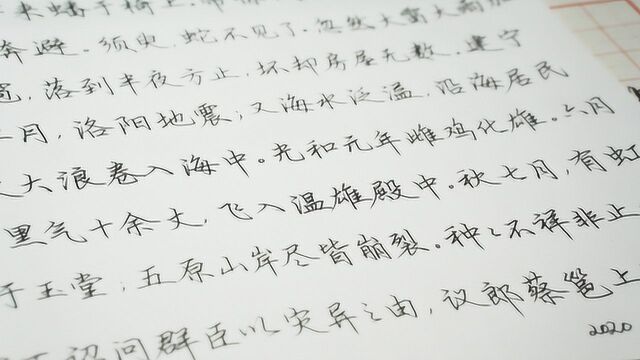 来蟠于椅上。
奔避。须臾,蛇不见了。忽然大雷大雨加
落到半夜方止,坏却房屋无数。建宁
二月,洛阳地震;又海水泛溢,沿海居民
大浪卷入海中。光和元年雌鸡化雄。六月
黑气十余丈,飞入温雄殿中。秋七月,有虹
于玉堂;五原山岸尽皆崩裂。种々不祥非止
诏问群臣以灾异之由,议郎蔡邕上
2020